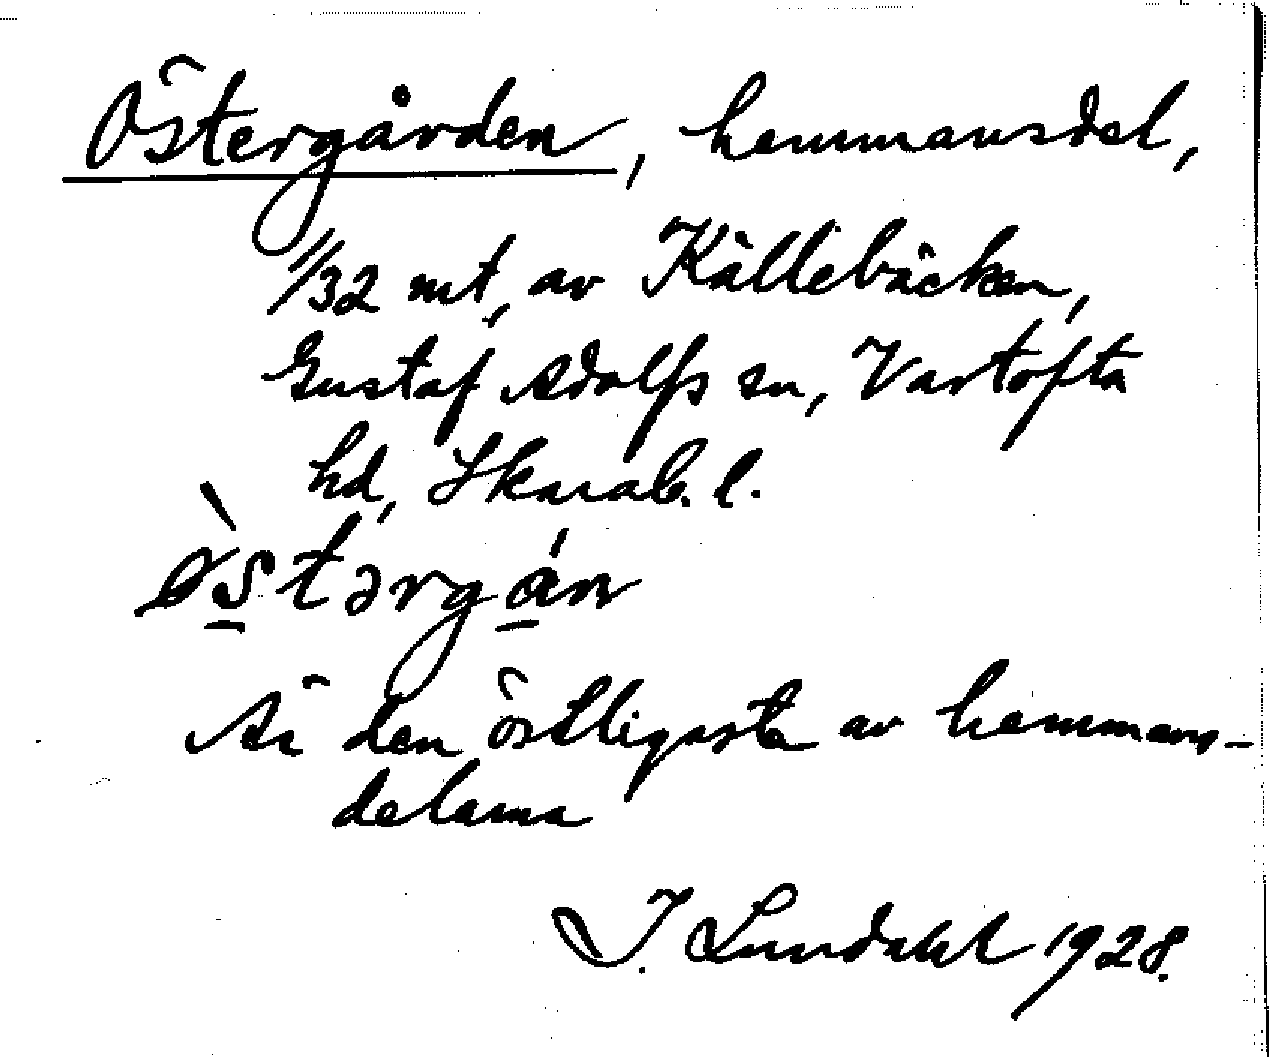 Östergården, hemmansdel,
1/32 mt, av Källebäcken,
Gustaf Adolfs sn, Vartofta
hd, Skarab. l.
ø̀s̠tərgа̠́n
Är den östligaste av hemmans-
delarna
I. Lundahl 1928.